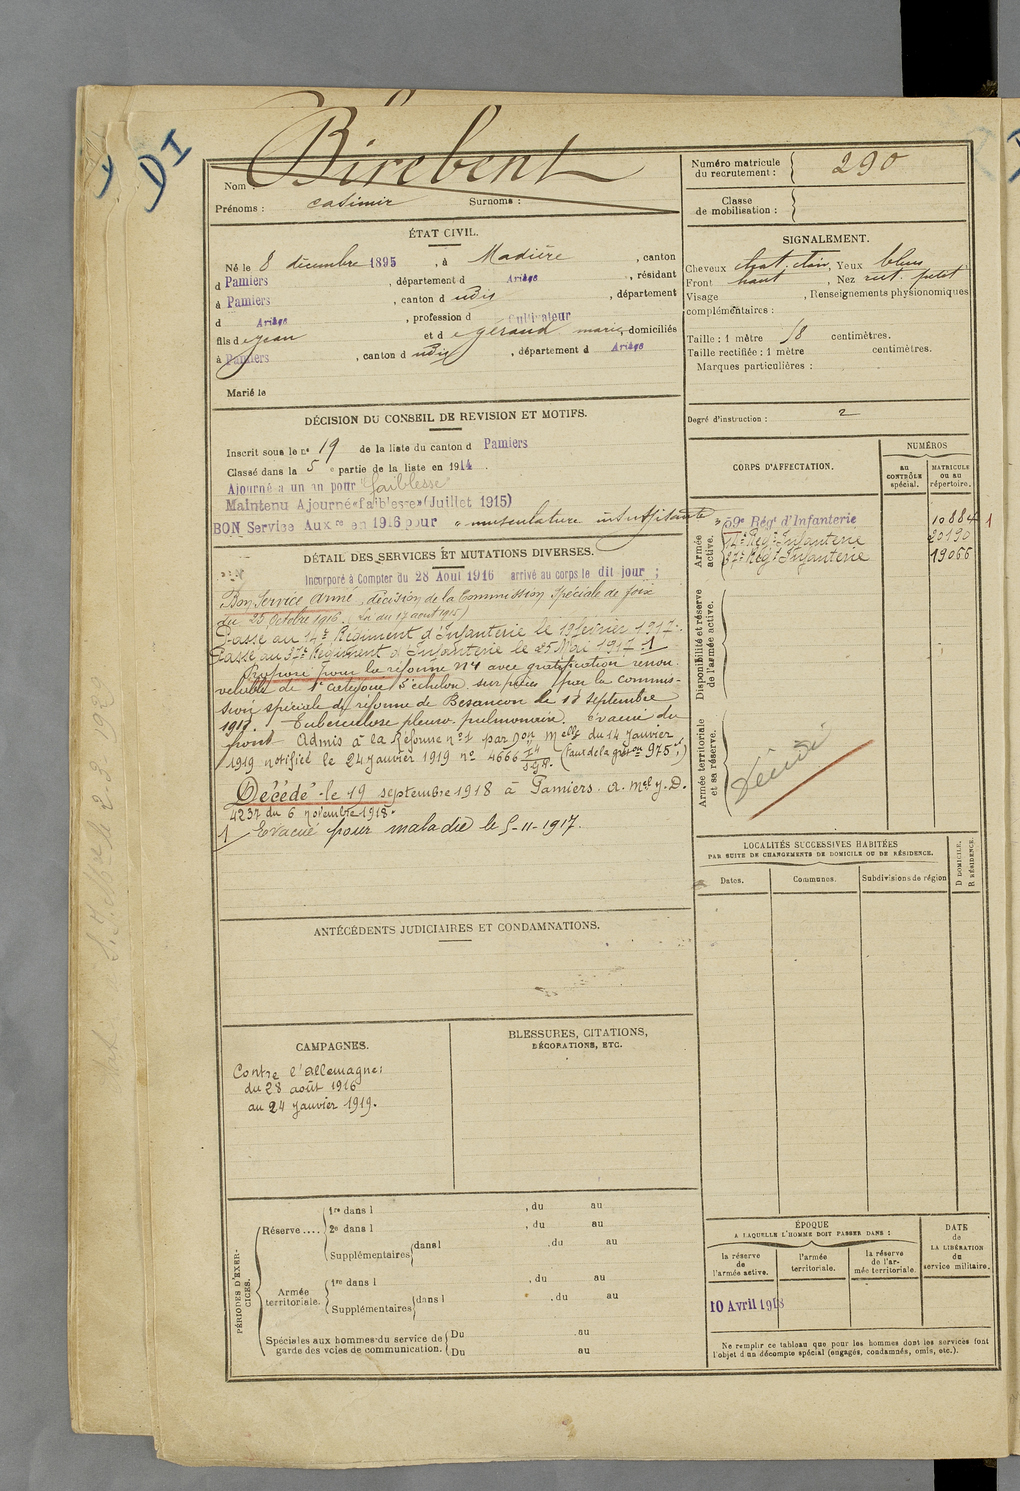 DI
Birebent
Nom
Prénoms : casimir Surnoms :
Numéro matricule
du recrutement : 290
Classe
de mobilisation :
ÉTAT CIVIL.
Né le 8 décembre 1895, à Madière, canton
d Pamiers, département d Ariège, résidant
à Pamiers, canton d udis, département
d Ariège, profession d Cultivateur
fils de Jean et de géraud marie domiciliés
à Pamiers, canton d udis, département d Ariège
Marié le
SIGNALEMENT.
Cheveux chat. clair, Yeux bleus
Front haut, Nez rect. petit
Visage , Renseignements physionomiques
complémentaires :
Taille : 1 mètre 58 centimètres.
Taille rectifiée : 1 mètre centimètres.
Marques particulières :
Degré d'instruction : 2
DÉCISION DU CONSEIL DE REVISION ET MOTIFS.
Inscrit sous le n° 19 de la liste du canton d Pamiers
Classé dans la 5e partie de la liste en 1914.
Ajourné a un an pour "faiblesse"
Maintenu Ajourné «faiblesse» (Juillet 1915)
BON Service Auxre en 1916 pour "musculature insuffisante"
DÉTAIL DES SERVICES ET MUTATIONS DIVERSES.
Incorporé à Compter du 28 Août 1916 arrivé au corps le dit jour ;
Bon Service Armé, décision de la Commission Spéciale de foix
du 25 octobre 1916. (La du 17 août 1915)
Passé au 14e Régiment d'Infanterie le 19 février 1917.
Passé au 37e Régiment d'Infanterie le 25 Mai 1917. 1
Proposé pour la réforme N°1 avec gratification renou-
velable de 1e catégorie 5e échelon sur pièces par la commis-
sion spéciale de réforme de Besançon le 18 septembre
1918. Tuberculose pleuro-pulmonaire. Evacué du
front Admis à la Réforme n°1 par Don Melle du 14 Janvier
1919 notifiée le 24 Janvier 1919 n° 4666 (Taux de la graton 975f)
Décédé le 19 septembre 1918 à Pamiers. a. mel y. D.
4237 du 6 novembre 1918.
1 Evacué pour maladie le 5-11-1917.
CORPS D'AFFECTATION.
NUMÉROS
au
CONTRÔLE
spécial.
MATRICULE
ou au
répertoire.
Armée
active.
59e Régt d'Infanterie 10884 1
14e Régt Infanterie 20190
37e Régt Infanterie 19066
Disponibilité et réserve
de l'armée active.
Armée territoriale
et sa réserve.
Décédé
LOCALITÉS SUCCESSIVES HABITÉES
PAR SUITE DE CHANGEMENTS DE DOMICILE OU DE RÉSIDENCE.
Dates. Communes. Subdivisions de région
D DOMICILE.
R RÉSIDENCE.
ANTÉCÉDENTS JUDICIAIRES ET CONDAMNATIONS.
CAMPAGNES.
Contre l'Allemagne:
du 28 août 1916
au 24 Janvier 1919.
BLESSURES, CITATIONS,
DÉCORATIONS, ETC.
PÉRIODES D'EXER-
CICES.
Réserve ....
1re dans l , du au
2e dans l , du au
Supplémentaires dans l , du au
Armée
territoriale.
1re dans l , du au
Supplémentaires dans l , du au
Spéciales aux hommes du service de
garde des voies de communication.
Du au
Du au
ÉPOQUE
A LAQUELLE L'HOMME DOIT PASSER DANS :
la réserve
de
l'armée active.
l'armée
territoriale.
la réserve
de l'ar-
mée territoriale.
DATE
de
LA LIBÉRATION
du
service militaire.
10 Avril 1918
Ne remplir ce tableau que pour les hommes dont les services font
l'objet d'un décompte spécial (engagés, condamnés, omis, etc.).